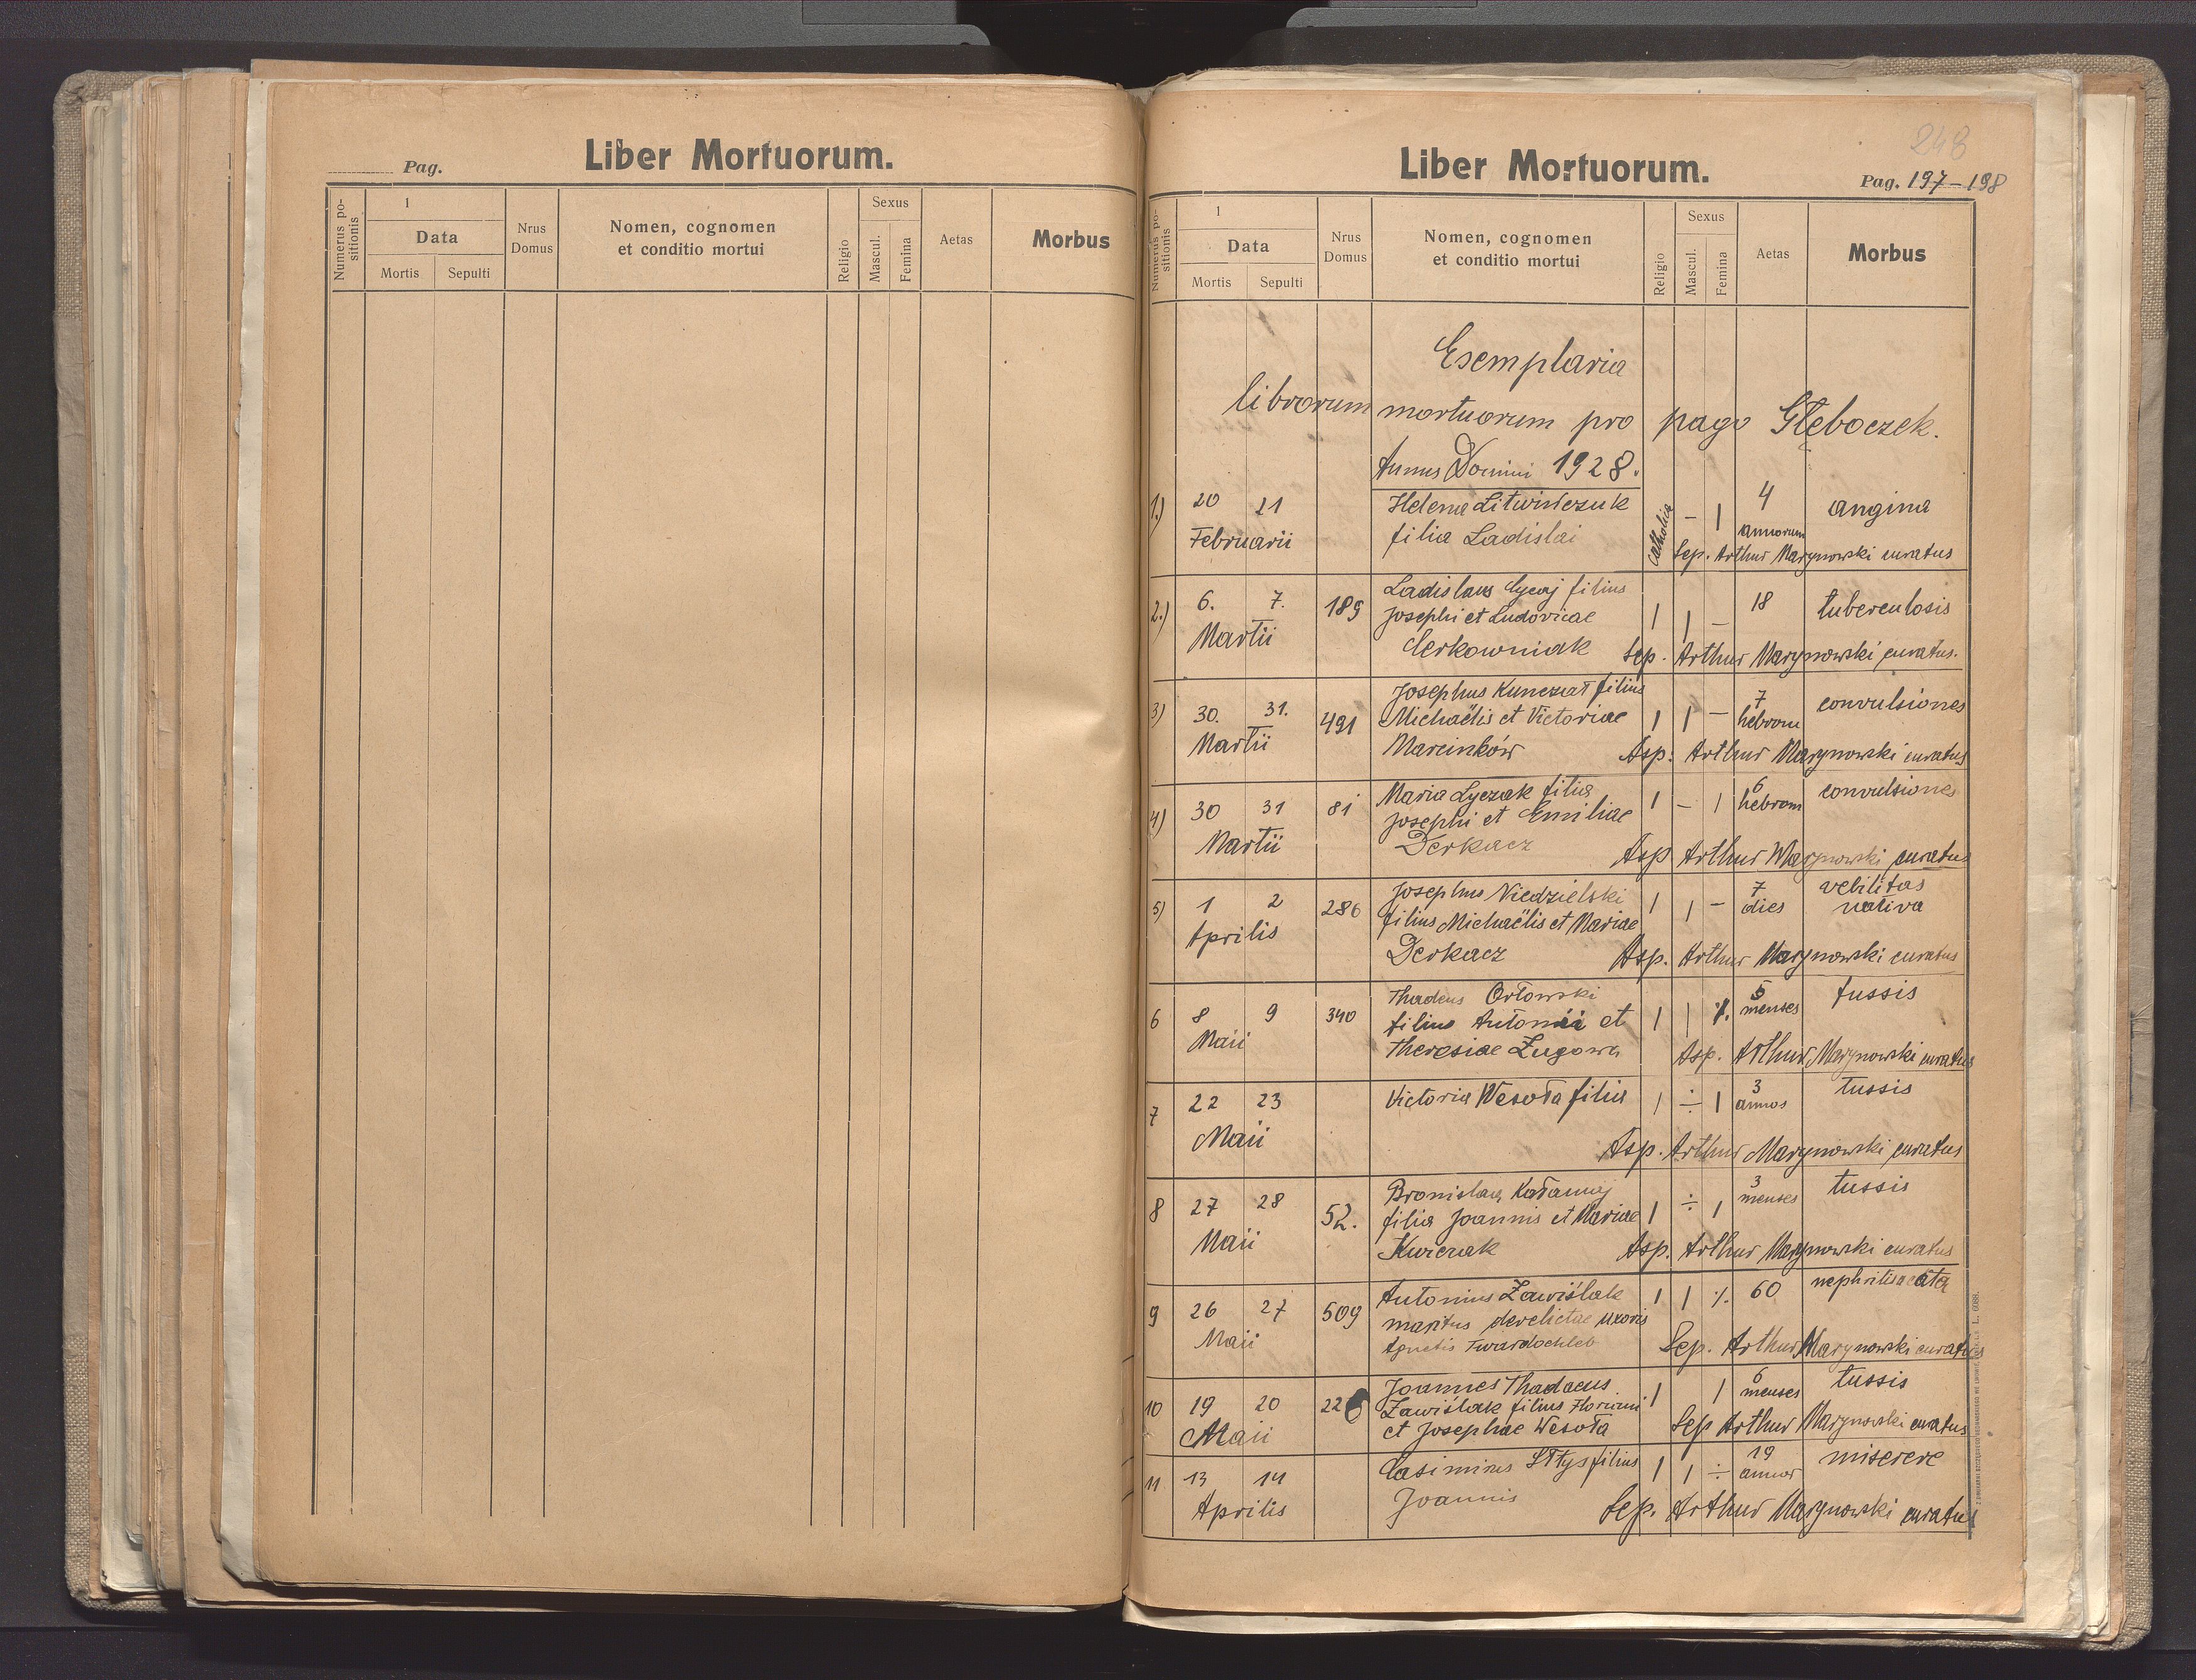 Pag.
Liber Mortuorum.
Numerus positionis
1
Data
Mortis Sepulti
Nrus Domus
Nomen, cognomen
et conditio mortui
Religio
Sexus
Mascul. Femina
Aetas
Morbus
248
Liber Mortuorum.
Pag. 197-198
Numerus positionis
1
Data
Mortis Sepulti
Nrus Domus
Nomen, cognomen
et conditio mortui
Religio
Sexus
Mascul. Femina
Aetas
Morbus
Esemplaria
librorum mortuorum pro pago Głeboczek.
Annus Domini 1928.
1.) 20 21 Helena Litwińczuk catholica - 1 4 angina
Februarii filia Ladislai annorum
Sep. Arthur Marynowski curatus
2.) 6. 7. 189 Ladislaus filius 1 1 - 18 tuberculosis
Martii Josephi et Ludovicae
Cerkowniak Sep. Arthur Marynowski curatus.
3) 30. 31. 491 Josephus filius 1 1 - 7 convulsiones
Martii Michaëlis et Victoriae hebdom
Marcinków Asp. Arthur Marynowski curatus
4) 30 31 81 Maria Lyczak filia 1 - 1 6 convulsiones
Martii Josephi et Emiliae hebdom
Derkacz Asp Arthur Marynowski curatus
5) 1 2 286 Josephus Niedzielski 1 1 - 7 velilitas
Aprilis filius Michaëlis et Mariae dies nativa
Derkacz Asp. Arthur Marynowski curatus
6 8 9 340 Thadeus Orłowski 1 1 ./. 5 tussis
Maii filius Antonii et menses
Theresiae Zugowa Asp. Arthur Marynowski curatus
7 22 23 Victoria Wesoła filia 1 ÷ 1 3 tussis
Maii annos
Asp. Arthur Marynowski curatus
8 27 28 52. Bronislava 1 ÷ 1 3 tussis
Maii filia Joannis et Mariae menses
Kurczak Asp. Arthur Marynowski curatus
9 26 27 509 Antonius Zawiślak 1 1 ./. 60 nephritis
Maii maritus derelictae uxoris
Agnetis Twardochleb Sep. Arthur Marynowski curatus
10 19 20 226 Joannes Thadaeus 1 1 6 tussis
Maii Zawiślak filius Floriani menses
et Josephae Wesoła Sep Arthur Marynowski curatus
11 13 14 Casimirus Słtys filius 1 1 ÷ 19 miserere
Aprilis Joannis annor
Sep. Arthur Marynowski curatus
L. 6088.